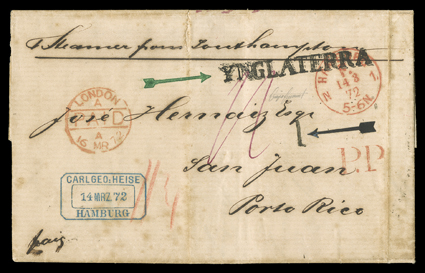 Steamer from Southampton
YNGLATERRA
LONDON
A
PAID
A
16 MR 72
14 3
72
5-6N.
N 1.
Jose Hernaiz Esqr
San Juan
P.P.
Porto Rico
CARL GEO: HEISE
14 MRZ. 72
HAMBURG